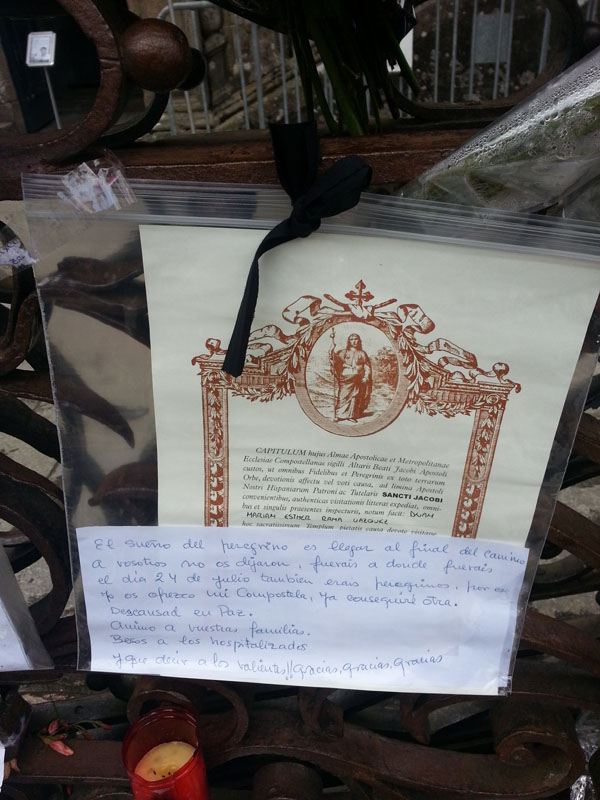 CAPITULUM hujus Almae Apostolicae et Metropolitanae
Ecclesiae Compostellanae sigilli Altaris Beati Jacobi Apostoli
custos, ut omnibus Fidelibus et Peregrinis ex toto terrarum
Orbe, devotionis affectu vel voti causa, ad limina Apostoli
Nostri Hispaniarum Patroni ac Tutelaris SANCTI JACOBI
convenientibus, authenticas visitationis litteras expediat, omni-
bus et singulis praesentes inspecturis, notum facit: Dnam
MARIAM ESTHER RAMA VAZQUEZ
hoc sacratissimum Templum pietatis causa devote visitasse
El sueño del peregrino es llegar al final del camino
a vosotros no os dejaron, fuerais a donde fuerais
el día 24 de julio también erais peregrinos, por eso
yo os ofrezco mi Compostela, ya conseguiré otra.
Descansad en Paz.
Animo a vuestras familias.
Besos a los hospitalizados
Y que decir a los valientes!! gracias, gracias, gracias